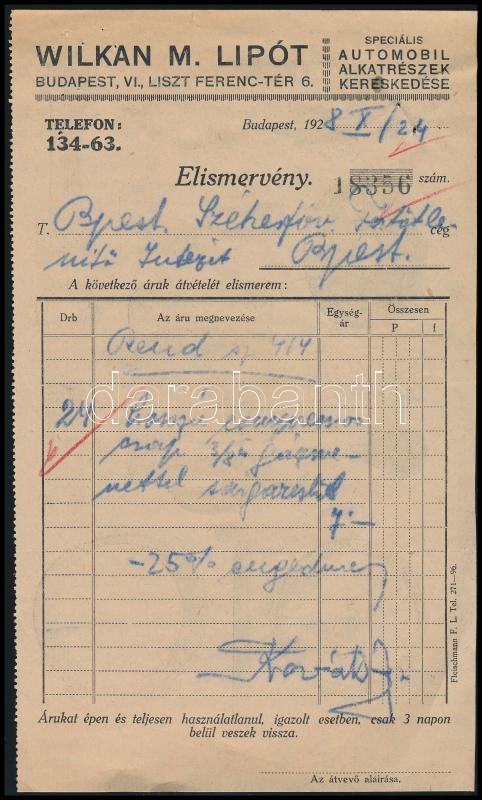 WILKAN M. LIPÓT
BUDAPEST, VI., LISZT FERENC-TÉR 6.
SPECIÁLIS
AUTOMOBIL
ALKATRÉSZEK
KERESKEDÉSE
TELEFON:
134-63.
Budapest, 1928 X/24
Elismervény. 18356 szám.
T. Bpest. Székesfőv. cég
Intézet Bpest.
A következő áruk átvételét elismerem:
Drb Az áru megnevezése Egység-ár Összesen
P f
Rend sz 414
24
csap 3/8"
7.—
-25% engedmény
Kováts
Árukat épen és teljesen használatlanul, igazolt esetben, csak 3 napon
belül veszek vissza.
Az átvevő aláirása.
Fleischmann F. L. Tel. 271—96.
darabanth